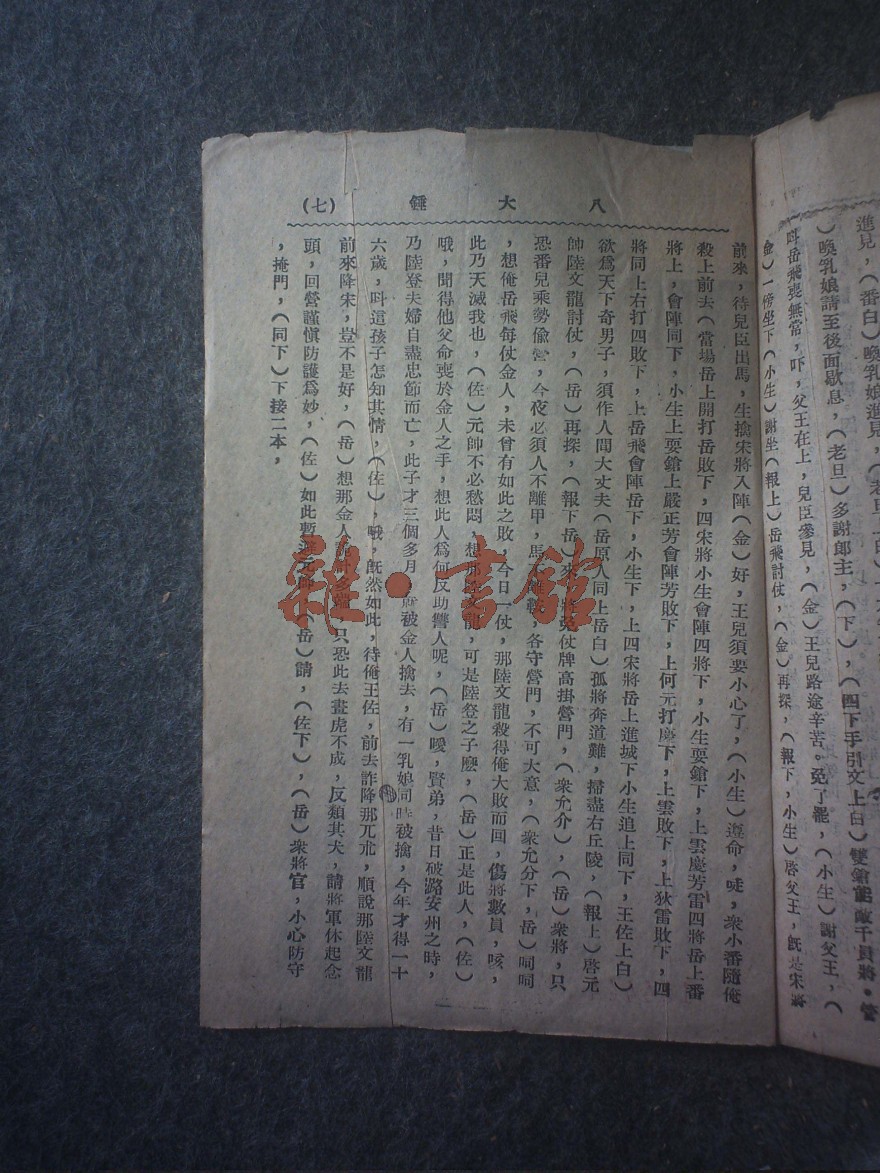 進見，（番白）喚乳娘進見，（老旦上白）
）喚乳娘請至後面歇息，（老旦）多謝郎主，（下），（四下手引文上白）雙鎗能敵千員將。管
呌岳飛喪無常，吓，父王在上，兒臣參見，（金）王兒路途辛苦。免了罷，（小生）謝父王，（
金）一傍坐下（小生）謝坐（報上）岳飛討仗，（金）再探，（報下，小生）啓父王，旣是宋將
八大錘（七）
前來，待兒臣出馬，生擒宋將入陣（金）好，王兒須要小心了，（小生）遵命，㖑，衆小番隨俺
殺上前去（當場岳上開打岳敗下，四宋將小生會陣四將下，小生耍鎗下，上雲慶芳雷四將岳上番
將上，會陣同下，小生上耍鎗上嚴正芳會陣芳敗下，上何元打慶下，上雲敗下，上狄雷敗下，四
將同上右打四敗下，上岳飛會陣岳下，小生下，上四宋將岳上進城下小生追上同下，王佐上白）
欲爲天下奇男子，須作人間大丈夫（岳原人同上岳白）孤將奔道難，掃盡右丘陵，（報上）啓元
帥陸文龍討仗，（岳）再探，（報下岳）來，將免仗牌高掛營門，（衆允介），（岳）衆將，只
恐番兒乘勢偷營，今夜必須人不離甲，馬不離鞍，各守營門，不可大意，（衆允分下，岳）呵呵
，想俺岳飛每仗金人，未曾有如此之敗，今日一仗，那陸文龍殺得俺大敗而回，傷將數員，咳，
此乃天滅我也，（佐）元帥不必愁悶，想那陸文龍，可是陸登之子麽，（岳）正是此人，（佐）
哦，聞得他父命喪於金人之手，想此人爲何反助讐人呢，（岳）噯，賢弟，昔日破潞安州之時，
乃陸登夫婦自盡忠節而亡，此子才三個多月，被金人擒去，有一乳娘同時被擒，今年才得一十
六歲，呌這孩子怎知其情，（佐），哦，旣然如此，待俺王佐，前去詐降那兀朮，順說那陸文龍
前來降宋，豈不是好，（岳）想那金人詭計多端，只恐此去畫虎不成，反類其犬，請將軍休起念
頭，回營謹愼防護爲妙，（佐）如此暫退元帥，（岳）請，（佐下），（岳）衆將官，小心防守
，掩門，（同下）下接二本，
雜·書館